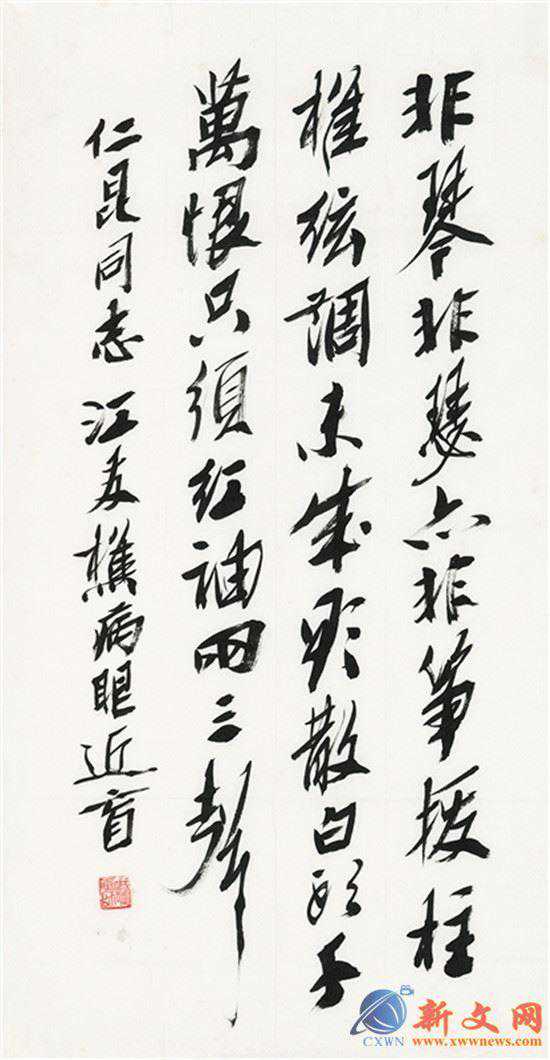 非琴非瑟亦非箏撥柱
推弦調未成欲散白頭千
萬恨只須紅袖兩三聲
仁昆同志 江友樵病眼近盲
新文网
CXWN www.xwwnews.com